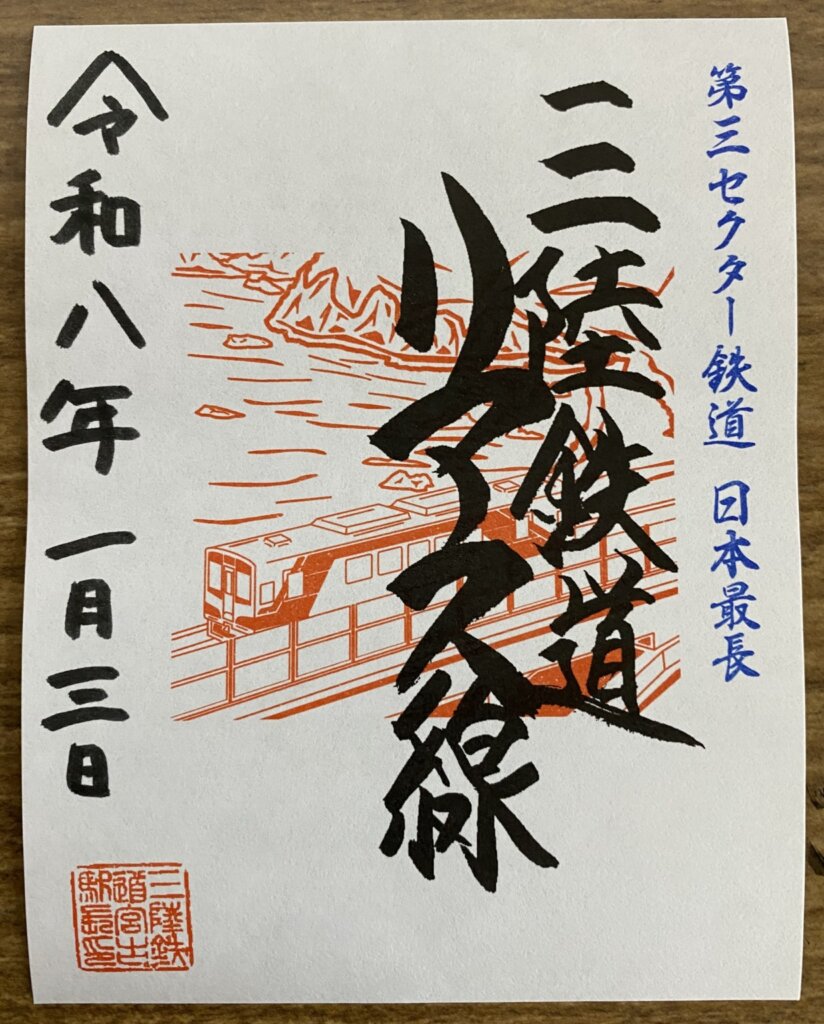 第三セクター鉄道 日本最長
三陸鉄道
リアス線
令和八年 一月三日
三陸鉄
道宮古
駅長印